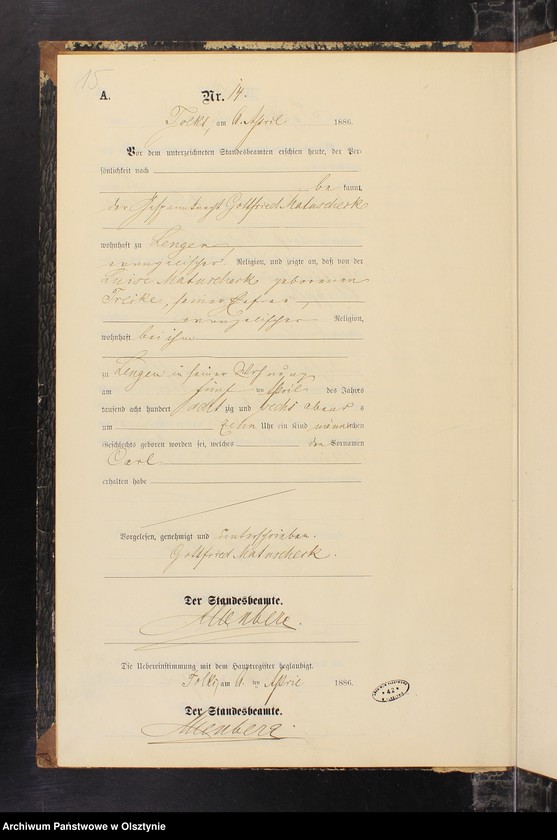 15
A.
Nr. 14.
Tolks, am 6. April 1886.
Vor dem unterzeichneten Standesbeamten erschien heute, der Per-
sönlichkeit nach
be kannt,
der Gottfried Matuscheck
wohnhaft zu Lengen,
evangelischer Religion, und zeigte an, daß von der
Luise Matuscheck geborenen
seiner Ehefrau,
evangelischer Religion,
wohnhaft bei ihm
zu Lengen in seiner Wohnung
am fünf ten April des Jahres
tausend acht hundert acht zig und sechs abends
um zehn Uhr ein Kind männlichen
Geschlechts geboren worden sei, welches den Vornamen
Carl
erhalten habe
Vorgelesen, genehmigt und unterschrieben.
Gottfried Matuscheck.
Der Standesbeamte.
Die Uebereinstimmung mit dem Hauptregister beglaubigt.
Tolks, am 6. ten April 1886.
Der Standesbeamte.
Archiwum Państwowe w Olsztynie